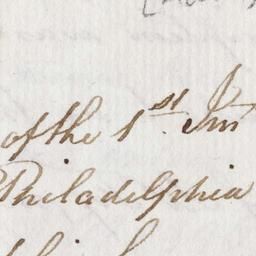 of the 1st. Jun
Philadelphia